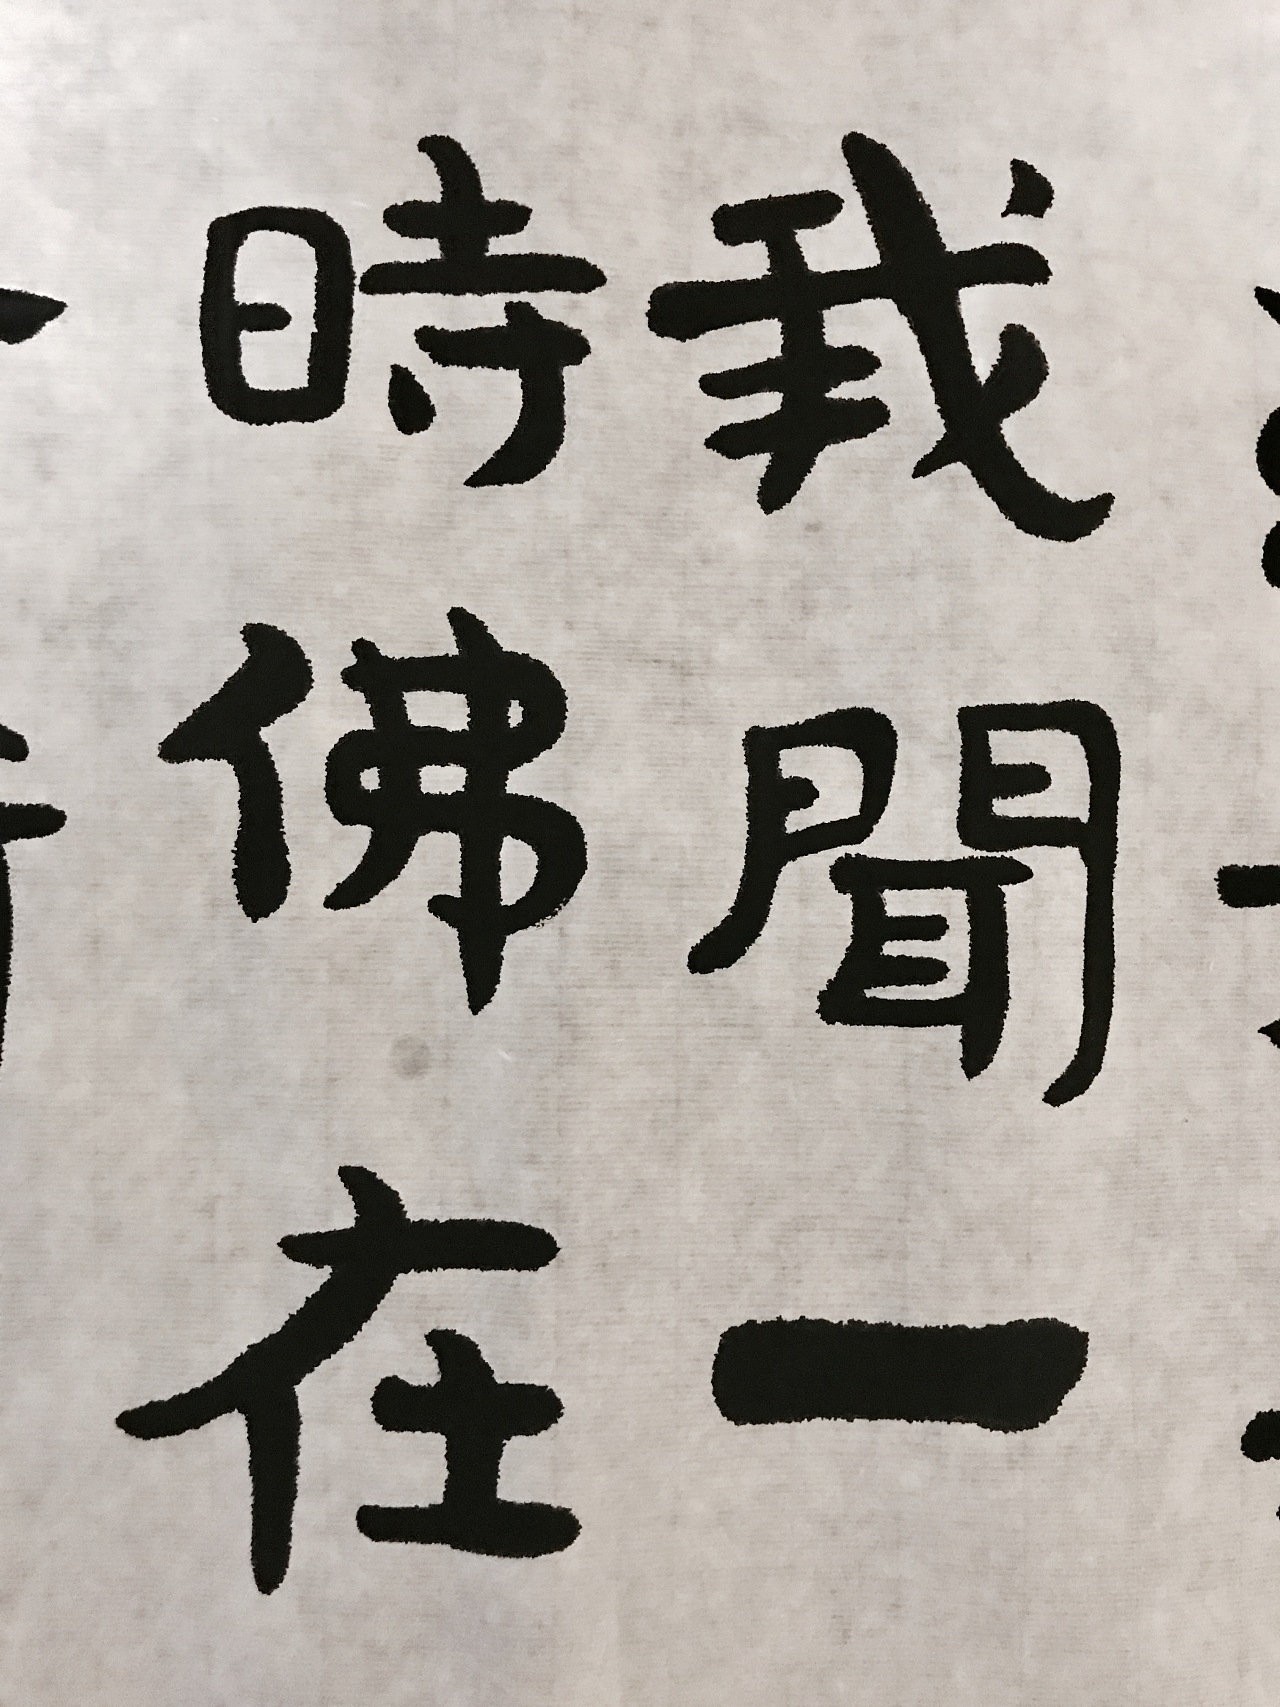 我聞一
時佛在